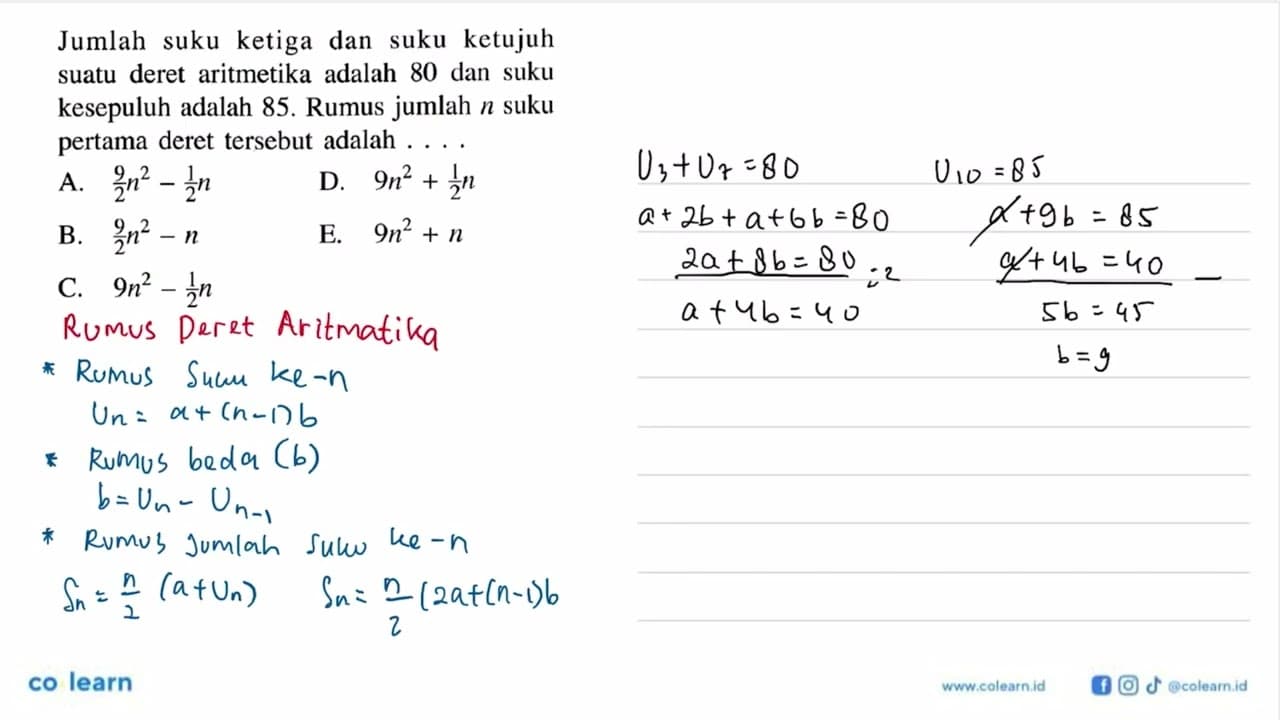 Jumlah suku ketiga dan suku ketujuh
suatu deret aritmetika adalah 80 dan suku
kesepuluh adalah 85. Rumus jumlah n suku
pertama deret tersebut adalah . . . .
A. 9/2 n² − 1/2 n
D. 9n² + 1/2 n
B. 9/2 n² − n
E. 9n² + n
C. 9n² − 1/2 n
Rumus Deret Aritmatika
* Rumus Suku ke-n
Un = a + (n-1)b
* Rumus beda (b)
b = Un - Un-1
* Rumus Jumlah Suku ke-n
Sn = n/2 (a+Un) Sn = n/2 (2a+(n-1)b
U3 + U7 = 80
a + 2b + a + 6b = 80
2a + 8b = 80 :2
a + 4b = 40
U10 = 85
a + 9b = 85
a + 4b = 40 −
5b = 45
b = 9
co learn
www.colearn.id @colearn.id